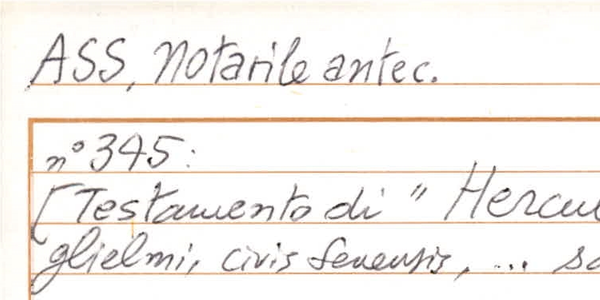 ASS, Notarile antec.
n° 345:
[Testamento di "
glielmi, civis senensis, ...